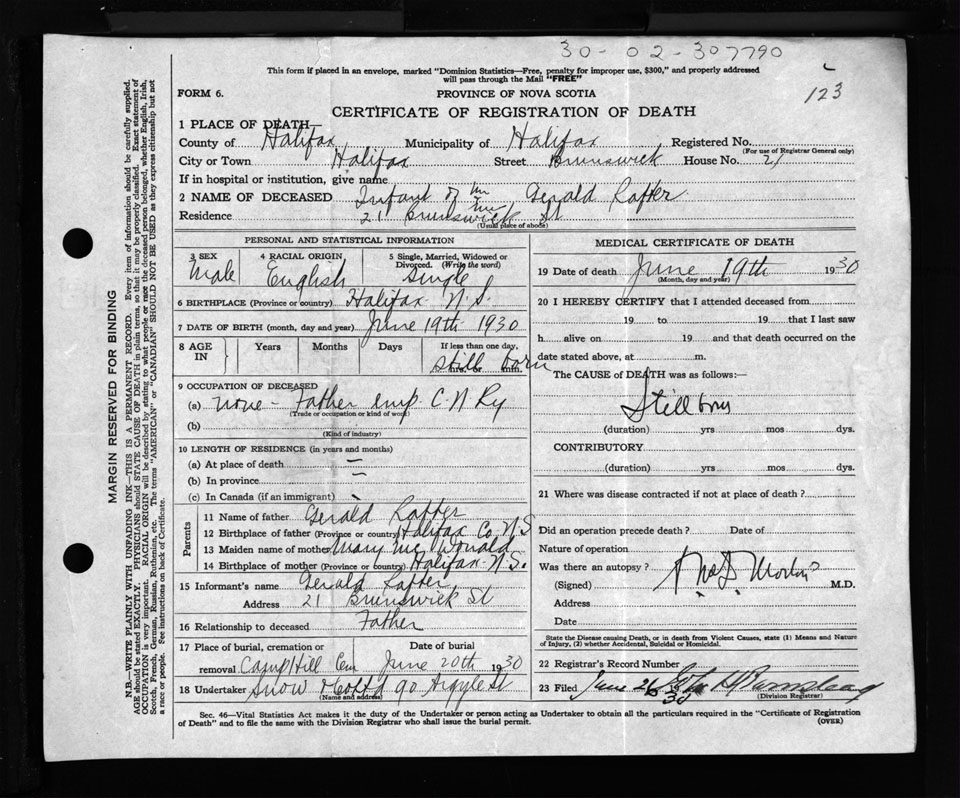 30-02-307790
This form if placed in an envelope, marked "Dominion Statistics—Free, penalty for improper use, $300," and properly addressed
will pass through the Mail "FREE"
123
FORM 6.
PROVINCE OF NOVA SCOTIA
CERTIFICATE OF REGISTRATION OF DEATH
1 PLACE OF DEATH—
County of Halifax Municipality of Halifax Registered No.
(For use of Registrar General only)
City or Town Halifax Street Brunswick House No. 21
If in hospital or institution, give name
2 NAME OF DECEASED Infant of Mr Gerald Rafter
Residence 21 Brunswick St
(Usual place of abode)
PERSONAL AND STATISTICAL INFORMATION
3 SEX 4 RACIAL ORIGIN 5 Single, Married, Widowed or Divorced. (Write the word)
Male English Single
6 BIRTHPLACE (Province or country) Halifax N.S.
7 DATE OF BIRTH (month, day and year) June 19th 1930
8 AGE IN Years Months Days If less than one day,
Still born
hrs. or min.
9 OCCUPATION OF DECEASED
(a) None - Father emp. C N Ry
(Trade or occupation or kind of work)
(b)
(Kind of industry)
10 LENGTH OF RESIDENCE (in years and months)
(a) At place of death —
(b) In province —
(c) In Canada (if an immigrant)
Parents
11 Name of father Gerald Rafter
12 Birthplace of father (Province or country) Halifax Co N.S
13 Maiden name of mother Mary McDonald
14 Birthplace of mother (Province or country) Halifax N.S.
15 Informant's name Gerald Rafter
Address 21 Brunswick St
16 Relationship to deceased Father
17 Place of burial, cremation or removal Date of burial
Camp Hill Cem June 20th 1930
18 Undertaker Snow & Co Ltd 90 Argyle St
(Name and address)
MEDICAL CERTIFICATE OF DEATH
19 Date of death June 19th 1930
(Month, day and year)
20 I HEREBY CERTIFY that I attended deceased from
19 to 19 that I last saw
h alive on 19 and that death occurred on the
date stated above, at m.
The CAUSE of DEATH was as follows:—
Stillborn
(duration) yrs mos dys.
CONTRIBUTORY
(duration) yrs mos dys.
21 Where was disease contracted if not at place of death?
Did an operation precede death? Date of
Nature of operation
Was there an autopsy?
(Signed) M.D.
Address
Date
State the Disease causing Death, or in death from Violent Causes, state (1) Means and Nature
of Injury, (2) whether Accidental, Suicidal or Homicidal.
22 Registrar's Record Number
23 Filed June
(Division Registrar)
Sec. 46—Vital Statistics Act makes it the duty of the Undertaker or person acting as Undertaker to obtain all the particulars required in the "Certificate of Registration
of Death" and to file the same with the Division Registrar who shall issue the burial permit.
(OVER)
MARGIN RESERVED FOR BINDING
N.B.—WRITE PLAINLY WITH UNFADING INK—THIS IS A PERMANENT RECORD. Every item of information should be carefully supplied.
AGE should be stated EXACTLY. PHYSICIANS should STATE CAUSE OF DEATH in plain terms, so that it may be properly classified. Exact statement of
OCCUPATION is very important. RACIAL ORIGIN will be described by stating to what people or race the deceased person belonged, whether English, Irish,
Scotch, French, German, Russian, Ruthenian, etc. The terms "AMERICAN" or "CANADIAN" SHOULD NOT BE USED as they express citizenship but not
a race or people. See instructions on back of Certificate.